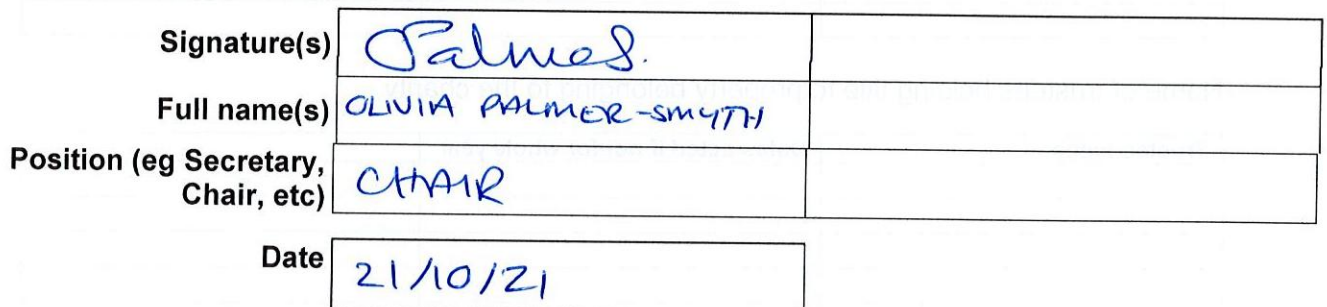 Signature(s)
Full name(s) OLIVIA PALMER-SMYTH
Position (eg Secretary, Chair, etc) CHAIR
Date 21/10/21